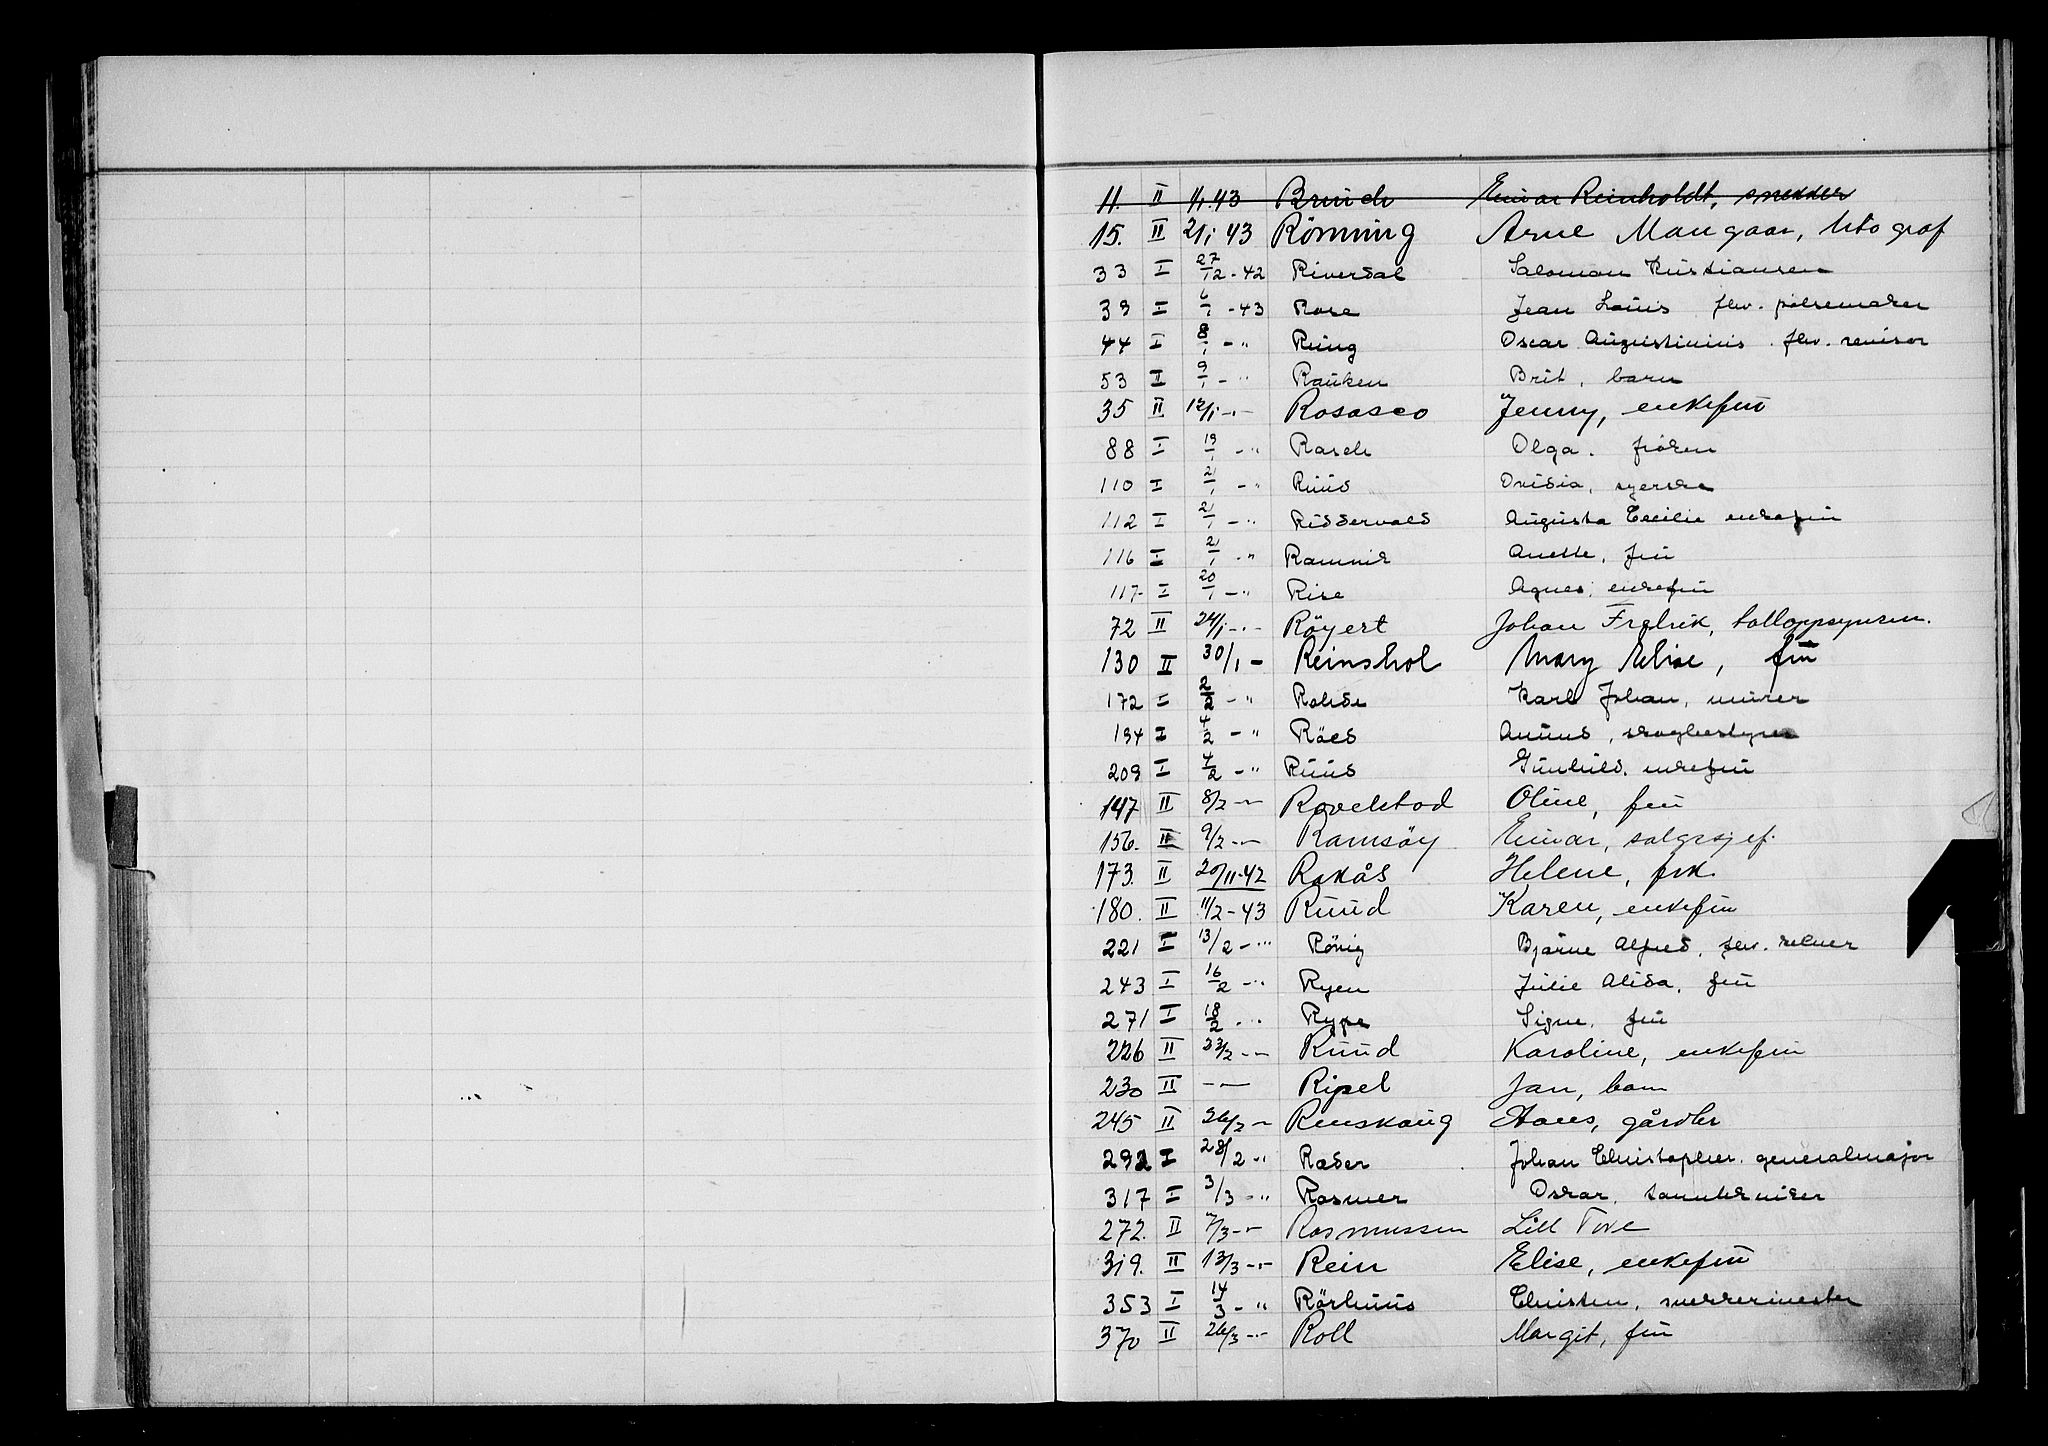 11. II 1/1.43 Bruch Einar Reinholdt, snekker
15. II 21/1 43 Rönning Arne Mangaar, litograf
33 I 27/12-42 Riverdal Salomon Kristiansen
39 I 6/1-43 Rose Jean Louis fhv. pølsemaker
44 I 8/1 - " Ring Oscar Augustinius fhv. revisor
53 II 9/1 - " Rauken Brit, barn
35 II 12/1 - " - Rosasco Jenny, enkefru
88 I 19/1 - " Rasch Olga. frøken
110 I 21/1 - " Ruud Ovidia, syerske
112 I 21/1 - " Riddervold Augusta Cecilie enkefru
116 I 21/1 - " Ramvik Anette, fru
117 I 20/1 - " Rise Agnes, enkefru
72 II 24/1 - " - Röyert Johan Fredrik, tolloppsynsm.
130 II 30/1 - Reinshol Mary Elise, fru
172 I 2/2 - " Rohde Karl Johan, murer
194 I 4/2 - " Röed Anund, skogbestyrer
209 I 4/2 - " Ruud Gunhild. enkefru
147 II 8/2 - " - Rovelstad Oline, fru
156. II 9/2 - " - Ramsöy Einar, salgssjef.
173. II 20/11-42 Rokås Helene, frk.
180. II 11/2-43 Ruud Karen, enkefru
221 I 13/2 - " Rönig Bjarne Alfred, fhv. kelner
243 I 16/2 - " Ryen Julie Alida, fru
271 I 18/2 - " Rype Signe. fru
226 II 23/2 - " - Ruud Karoline, enkefru
230 II - " - Ripel Jan, barn
245 II 26/2 - Renskaug Hans, gårdbr
292 I 28/2 - " Ræder Johan Christopher. generalmajor
317 I 3/3 - " Rosmer Oskar, tanntekniker
272. II 7/3 - " - Rasmussen Lill Tove
319. II 13/3 - " - Rein Elise, enkefru
353 I 14/3 - " Rörhuus Christen, snekkermester
370 II 26/3 - " - Roll Margit, fru